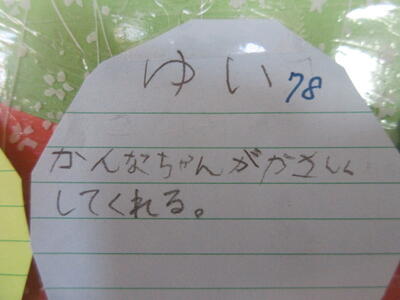 ゆい
78
かんなちゃんが
してくれる。